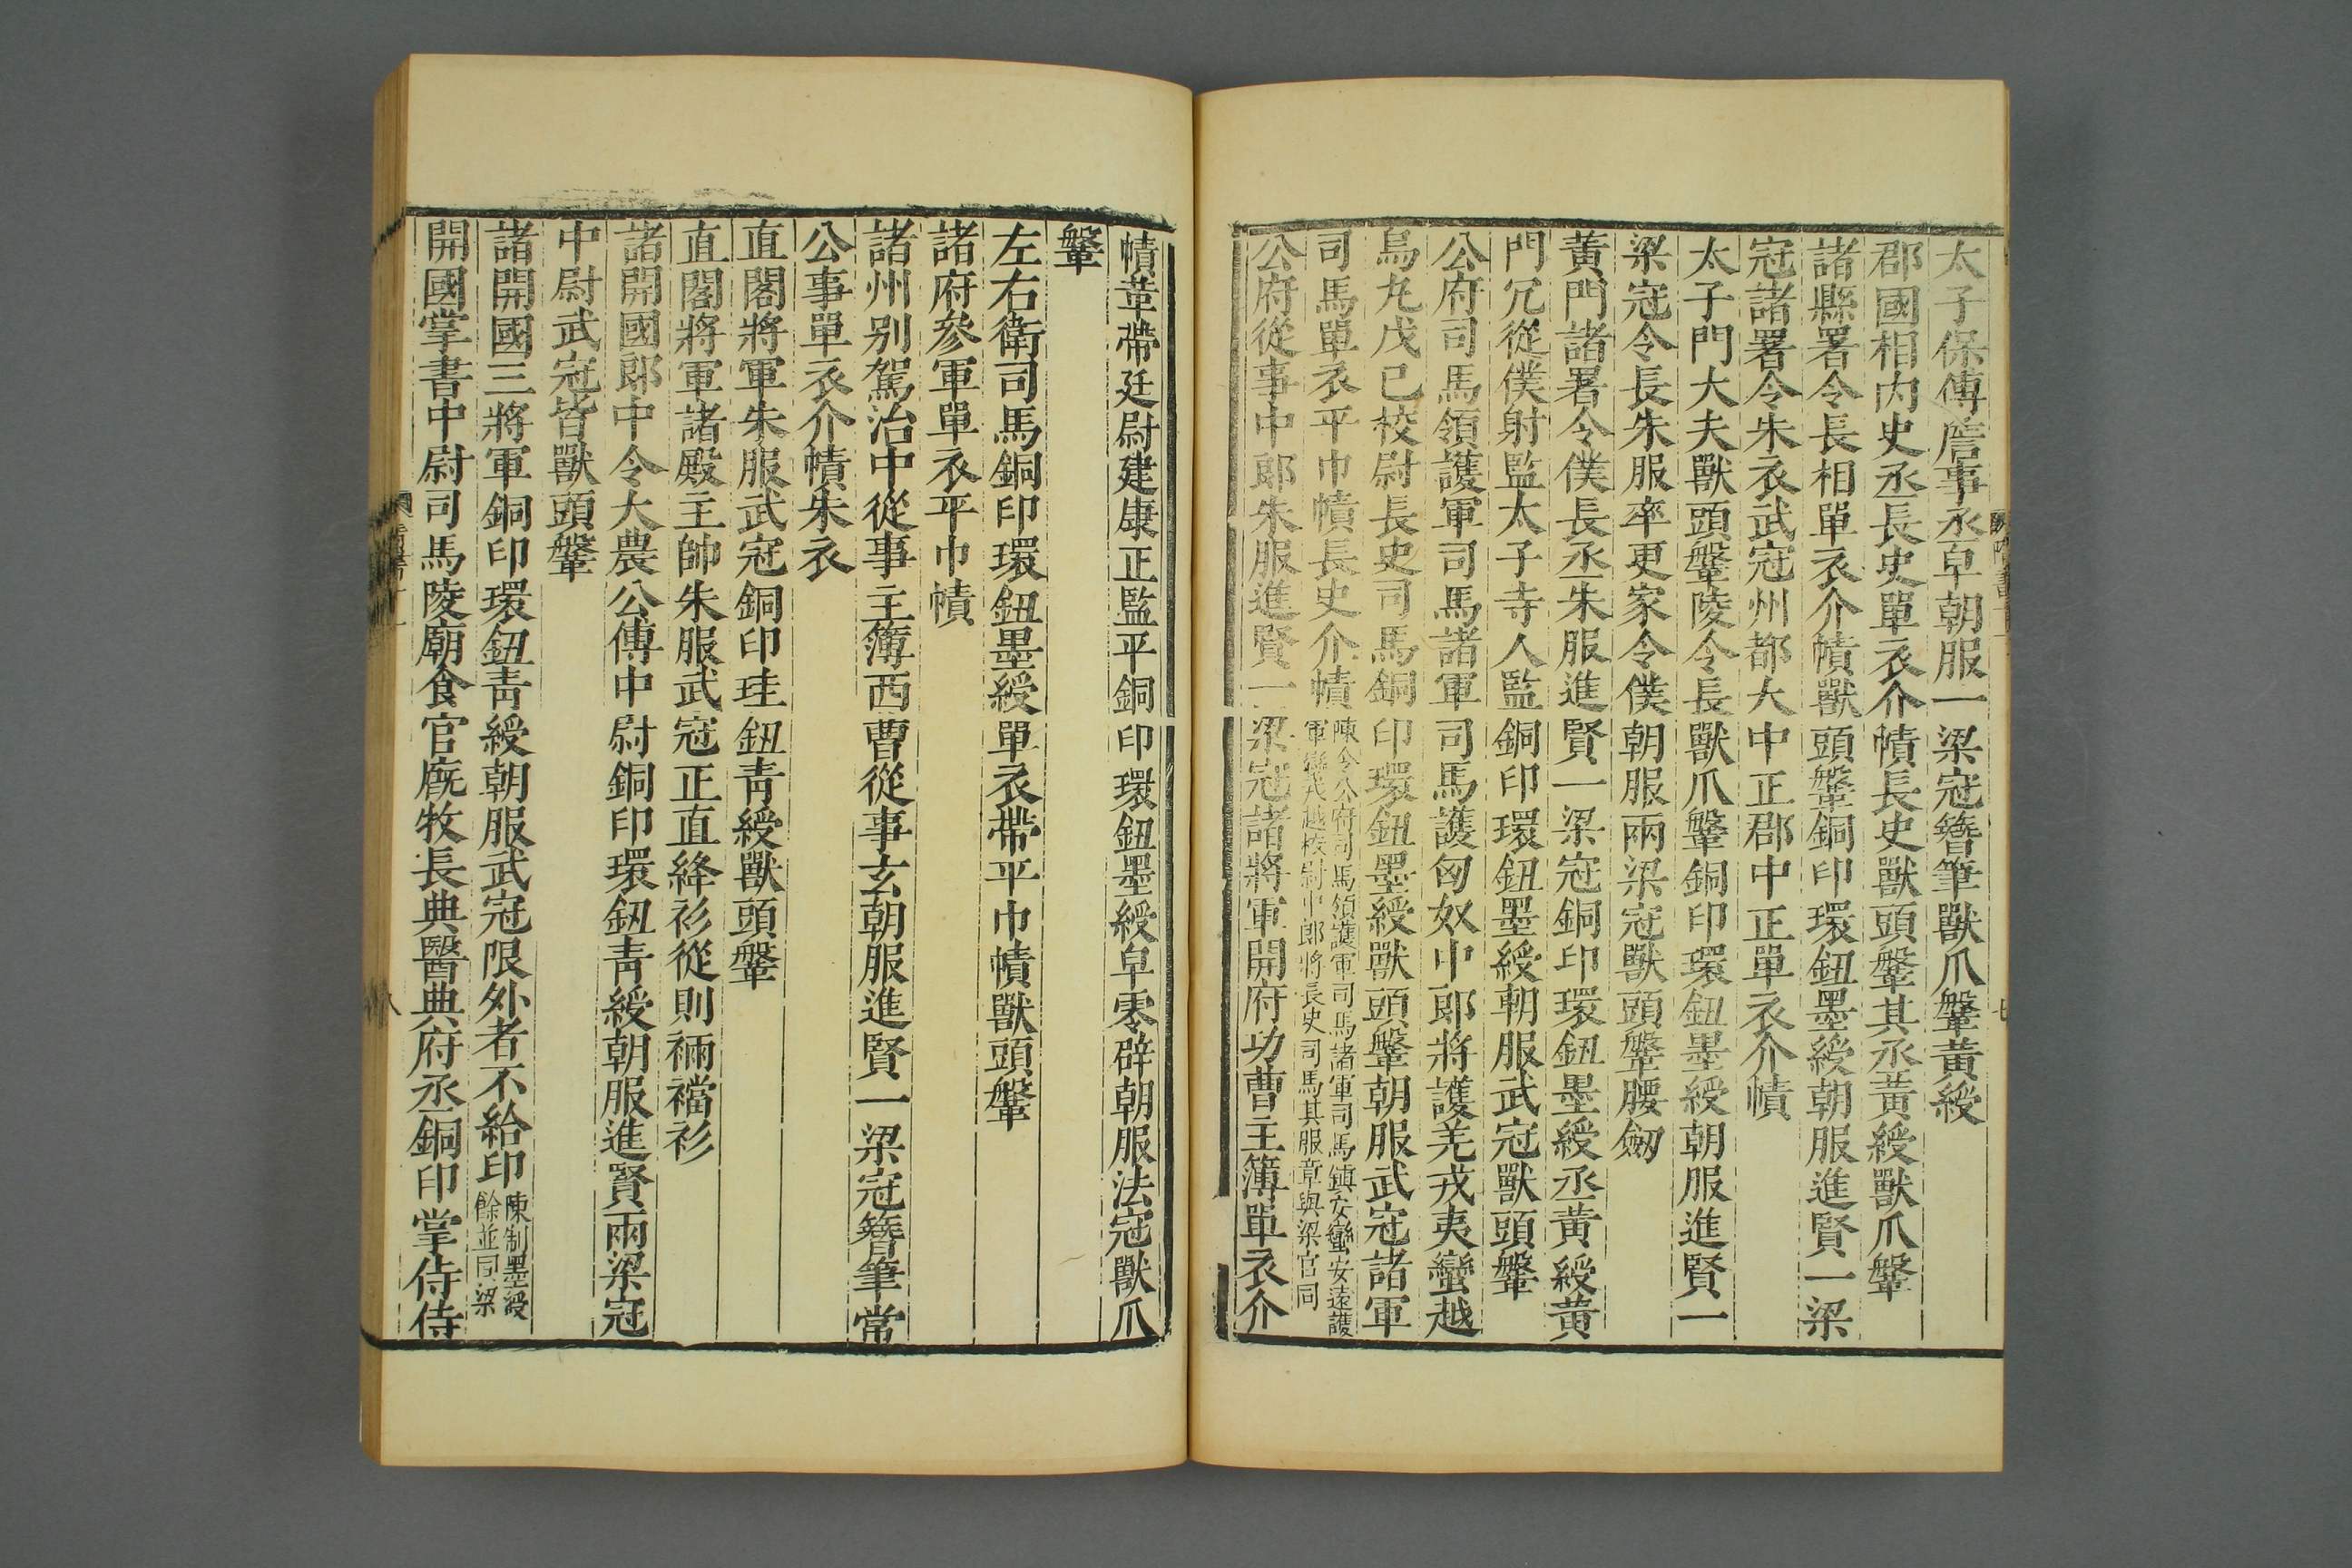 太子保傅詹事丞皁朝服一梁冠簪筆獸爪鞶黃綬
郡國相內史丞長史單衣介幘長史獸頭鞶其丞黃綬獸爪鞶
諸縣署令長相單衣介幘獸頭鞶銅印環鈕墨綬朝服進賢一梁
冠諸署令朱衣武冠州都大中正郡中正單衣介幘
太子門大夫獸頭鞶陵令長獸爪鞶銅印環鈕墨綬朝服進賢一
梁冠令長朱服率更家令僕朝服兩梁冠獸頭鞶腰劒
黃門諸署令僕長丞朱服進賢一梁冠銅印環鈕墨綬丞黃綬黃
門冗從僕射監太子寺人監銅印環鈕墨綬朝服武冠獸頭鞶
公府司馬領護軍司馬諸軍司馬護匈奴中郎將護羌戎夷蠻越
烏丸戊己校尉長史司馬銅印環鈕墨綬獸頭鞶朝服武冠諸軍
司馬單衣平巾幘長史介幘陳令公府司馬領護軍司馬諸軍司馬鎮安蠻安遠護
軍蠻戎越校尉中郎將長史司馬其服章與梁官同
公府從事中郎朱服進賢一梁冠諸將軍開府功曹主簿單衣介
幘革帶廷尉建康正監平銅印環鈕墨綬皁零辟朝服法冠獸爪
鞶
左右衛司馬銅印環鈕墨綬單衣帶平巾幘獸頭鞶
諸府參軍單衣平巾幘
諸州別駕治中從事主簿西曹從事玄朝服進賢一梁冠簪筆常
公事單衣介幘朱衣
直閣將軍朱服武冠銅印珪鈕青綬獸頭鞶
直閣將軍諸殿主帥朱服武冠正直絳衫從則裲襠衫
諸開國郎中令大農公傅中尉銅印環鈕青綬朝服進賢兩梁冠
中尉武冠皆獸頭鞶
諸開國三將軍銅印環鈕青綬朝服武冠限外者不給印陳制墨綬
餘並同梁
開國掌書中尉司馬陵廟食官廐牧長典醫典府丞銅印掌侍侍